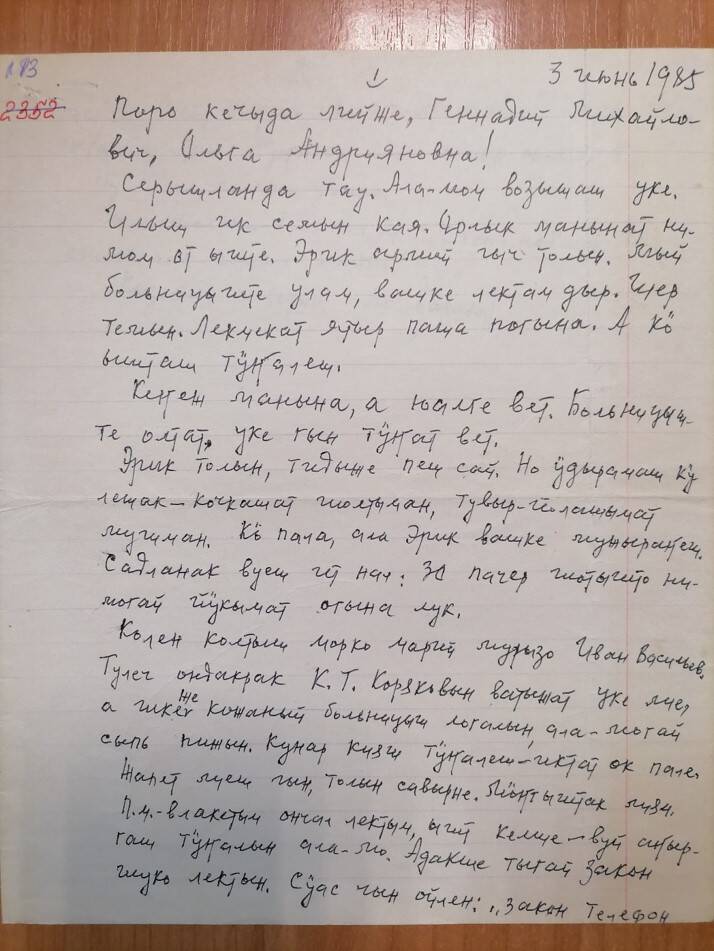 183
1
3 июнь 1985
2352
Поро кечыда лийже, Геннадий Михайло-
вич, Ольга Андрияновна!
Серышланда тау. Ала-мом возышаш уке.
Илыш ик семын кая. Орлык манынат ни-
мом от ыште. Эрик армий гыч толын. Мый
больницыште улам, вашке лектам дыр. Шер
темын. Лекмекат ятыр паша погына. А кӧ
ышташ тӱҥалеш.
Кеҥеж манына, а юалге вет. Больницыш-
те олтат, уке гын тӱҥат вет.
Эрик толын, тидыже пеш сай. Но ӱдырамаш кӱ-
лешак – кочкашат шолтыман, тувыр-йолашымат
мушман. Кӧ пала, ала Эрик вашке
Садланак вуеш ит нал: за пачер шотышто ни-
могай йӱкымат огына лук.
Колен колтыш морко марий мурызо Иван Васильев.
Тулеч ондакрак К. Т. Коряковын ватыжат уке лие,
а шкеже кожаный больницыш логалын, ала-могай
сыпь пижын. Кунар кияш тӱҥалеш – иктат ок пале.
Жапет лиеш гын, толын савырне. Мӧҥгыштак лияш.
П.ч.-влакетым ончал лектым, ыш келше – вуй аҥыр-
гаш тӱҥалын ала-мо. Адакше тыгай закон
шуко лектын. Сӱас чын ойлен: „Закон телефон